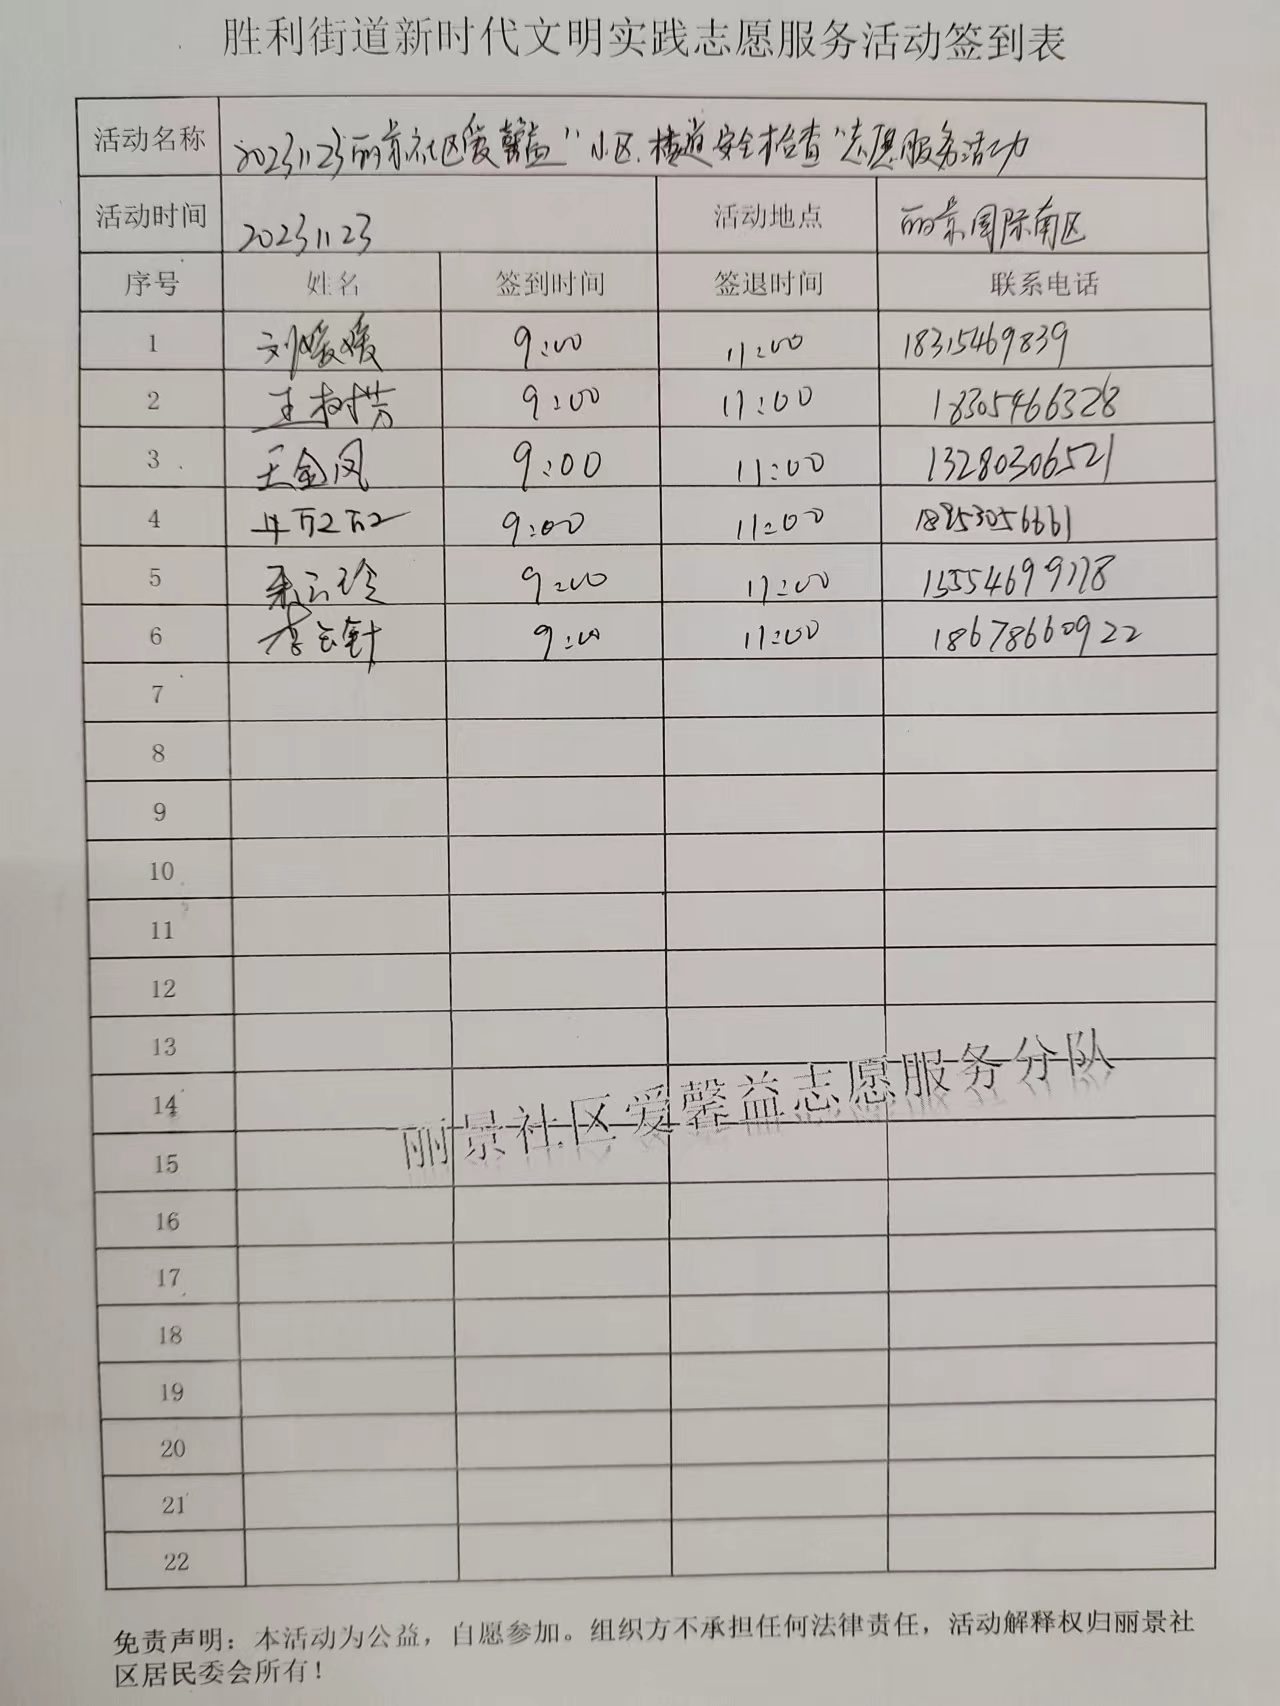 胜利街道新时代文明实践志愿服务活动签到表
活动名称 20231123丽景社区爱馨益"小区楼道安全检查"志愿服务活动
活动时间 20231123 活动地点 丽景国际南区
序号 姓名 签到时间 签退时间 联系电话
1 刘媛媛 9:00 11:00 18315469839
2 王树芳 9:00 11:00 18305466328
3 王金凤 9:00 11:00 13280306521
4 9:00 11:00 18953056661
5 9:00 11:00 15554699178
6 9:00 11:00 18678660922
7
8
9
10
11
12
13
14
15
16
17
18
19
20
21
22
丽景社区爱馨益志愿服务分队
免责声明：本活动为公益，自愿参加。组织方不承担任何法律责任，活动解释权归丽景社
区居民委会所有！